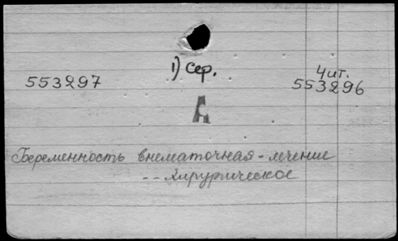 1) Сер.
553297
Чит.
553296
А
Беременность внематочная - лечение
-- хирургическое